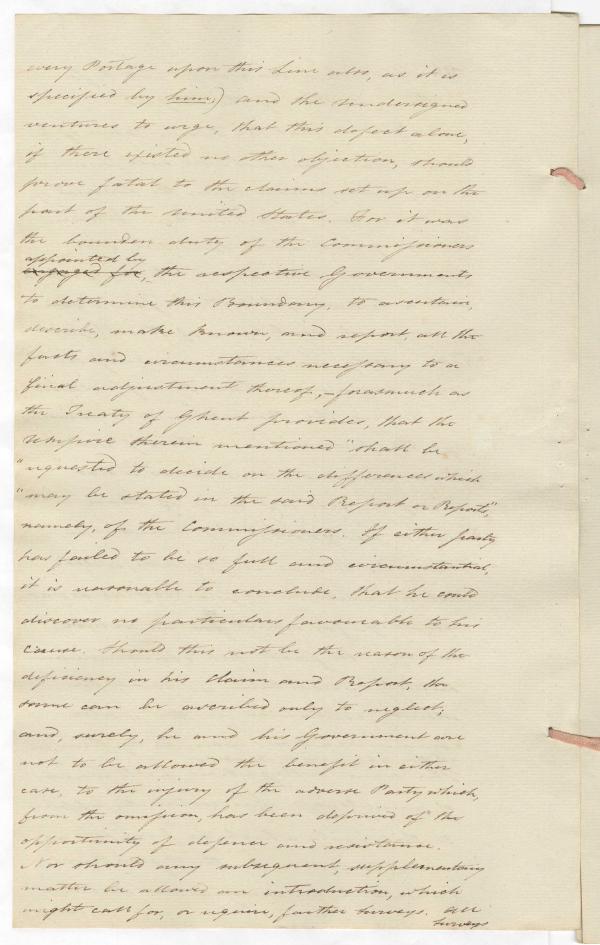 every Portage upon this Line also, as it is
specified by him;) and the undersigned
ventures to urge, that this defect alone,
if there existed no other objection, should
prove fatal to the claims set up on the
part of the United States. For it was
the bounden duty of the Commissioners
appointed by
engaged for, the respective Governments
to determine this Boundary, to ascertain,
describe, make known, and report, all the
facts and circumstances necessary to a
final adjustment thereof,—forasmuch as
the Treaty of Ghent provides, that the
Umpire therein mentioned "shall be
"requested to decide on the differences which
"may be stated in the said Report or Reports",
namely, of the Commissioners. If either party
has failed to be so full and circumstantial,
it is reasonable to conclude, that he could
discover no particulars favourable to his
cause. Should this not be the reason of the
deficiency in his Claim and Report, the
same can be ascribed only to neglect;
and, surely, he and his Government are
not to be allowed the benefit in either
case, to the injury of the adverse Party which,
from the omission, has been deprived of the
opportunity of defence and resistance.
Nor should any subsequent, supplementary
matter be allowed an introduction, which
might call for, or require, further Surveys. All
Surveys